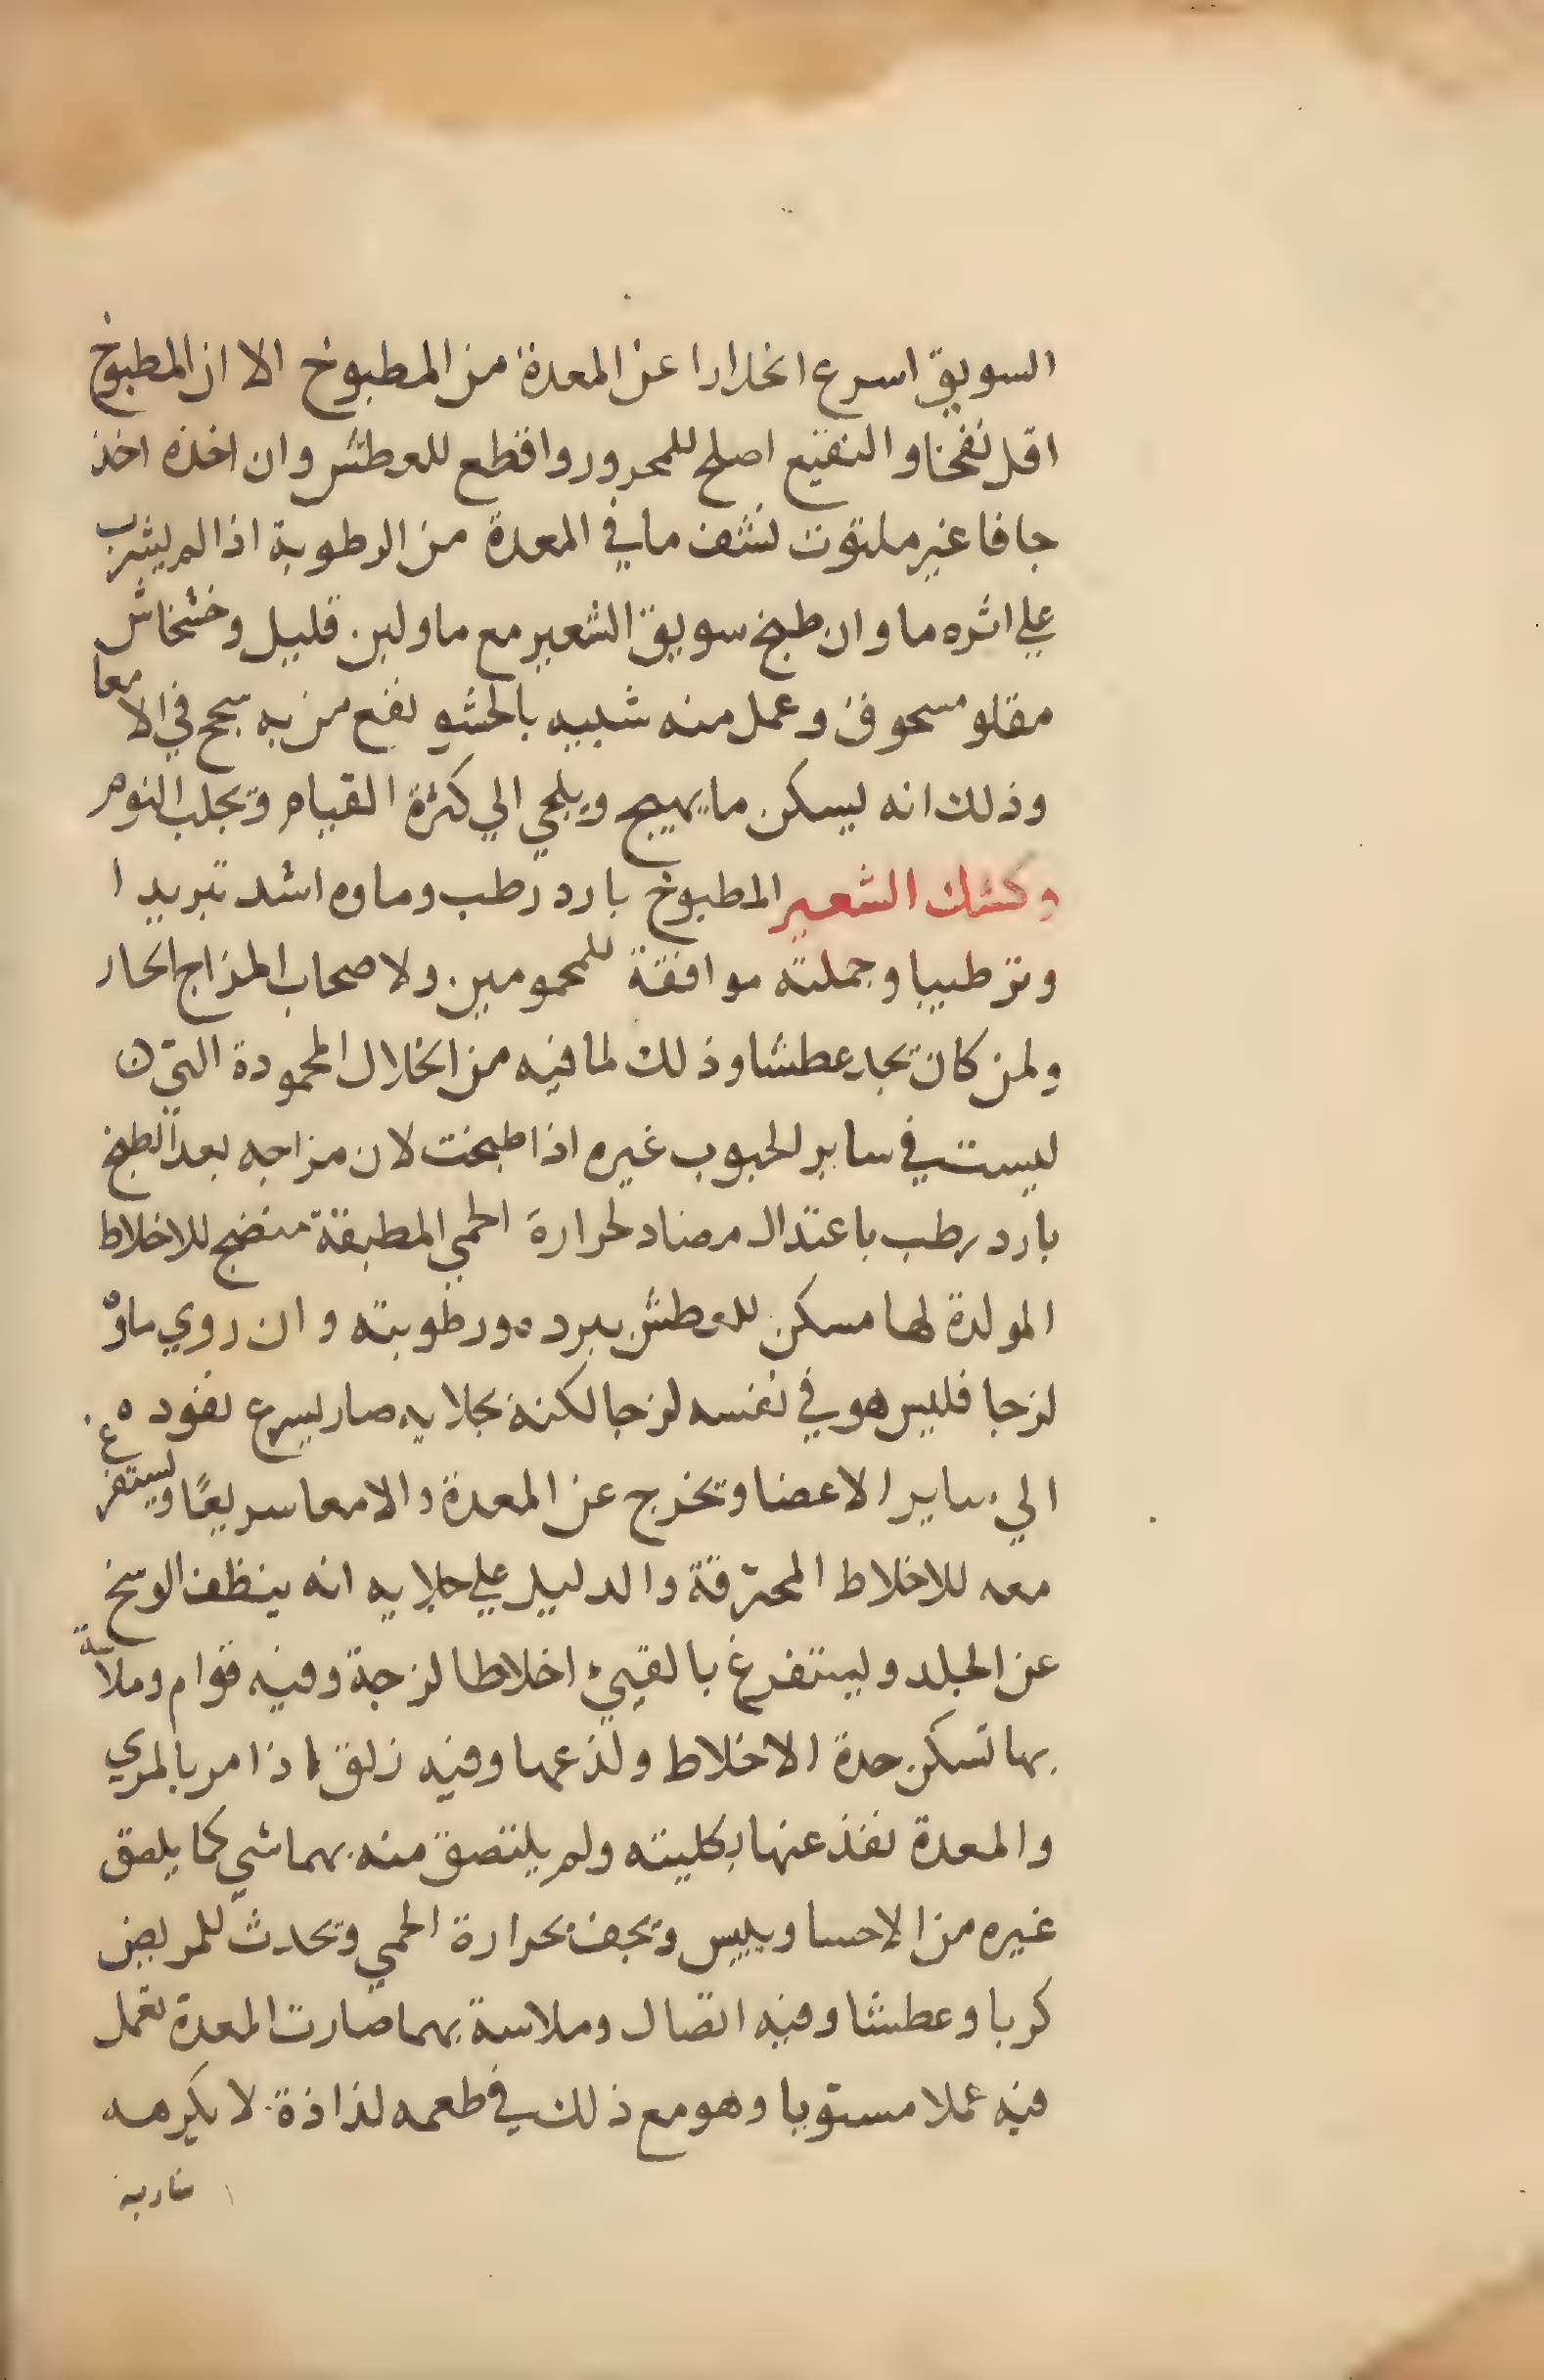 السويق اسرع انحدارا عن المعدة من المطبوخ الا ان المطبوخ
اقل نفخا والنقيع اصلح للمحرور واقطع للعطش وان اخذه اخذ
جافا غير ملتوت نشف ما في المعدة من الرطوبة اذا لم يشرب
علي اثره ما وان طبخ سويق الشعير مع ما ولبن قليل وخشخاش
مقلو مسحوق وعمل منه شبيه بالحشو نفع من به سحج في الامعا
وذلك انه يسكن ما يهيج ويلجي الي كثرة القيام ويجلب النوم
وكشك الشعير المطبوخ بارد رطب وماوه اشد تبريدا
وترطيبا وجملته موافقة للمحمومين ولاصحاب المزاج الحار
ولمن كان يجد عطشا وذلك لما فيه من الخلال المحمودة التي
ليست في ساير الحبوب غيره اذا طبخت لان مزاجه بعد الطبخ
بارد رطب باعتدال مضاد لحرارة الحمي المطبقة منضج للاخلاط
المولدة لها مسكن للعطش ببرده ورطوبته وان روي ماؤه
لزجا فليس هو في نفسه لزجا لكنه بجلايه صار يسرع نفوده
الي ساير الاعضا ويخرج عن المعدة والامعا سريعًا ويستفرغ
معه للاخلاط المحترقة والدليل علي جلايه انه ينظف الوسخ
عن الجلد ويستفرغ بالقيئ اخلاطا لزجة وفيه قوام وملاسة
بها تسكن حدة الاخلاط ولذعها وفيه زلق فاذا مر بالمري
والمعدة نفذ عنها بكليته ولم يلتصق منه بهما شي كما يلصق
غيره من الاحسا وييبس ويجف بحرارة الحمي ويحدث للمريض
كربا وعطشا وفيه اتصال وملاسة بهما صارت المعدة تعمل
فيه عملا مستويا وهو مع ذلك في طعمه لذاذة لا يكرهه
شاربه